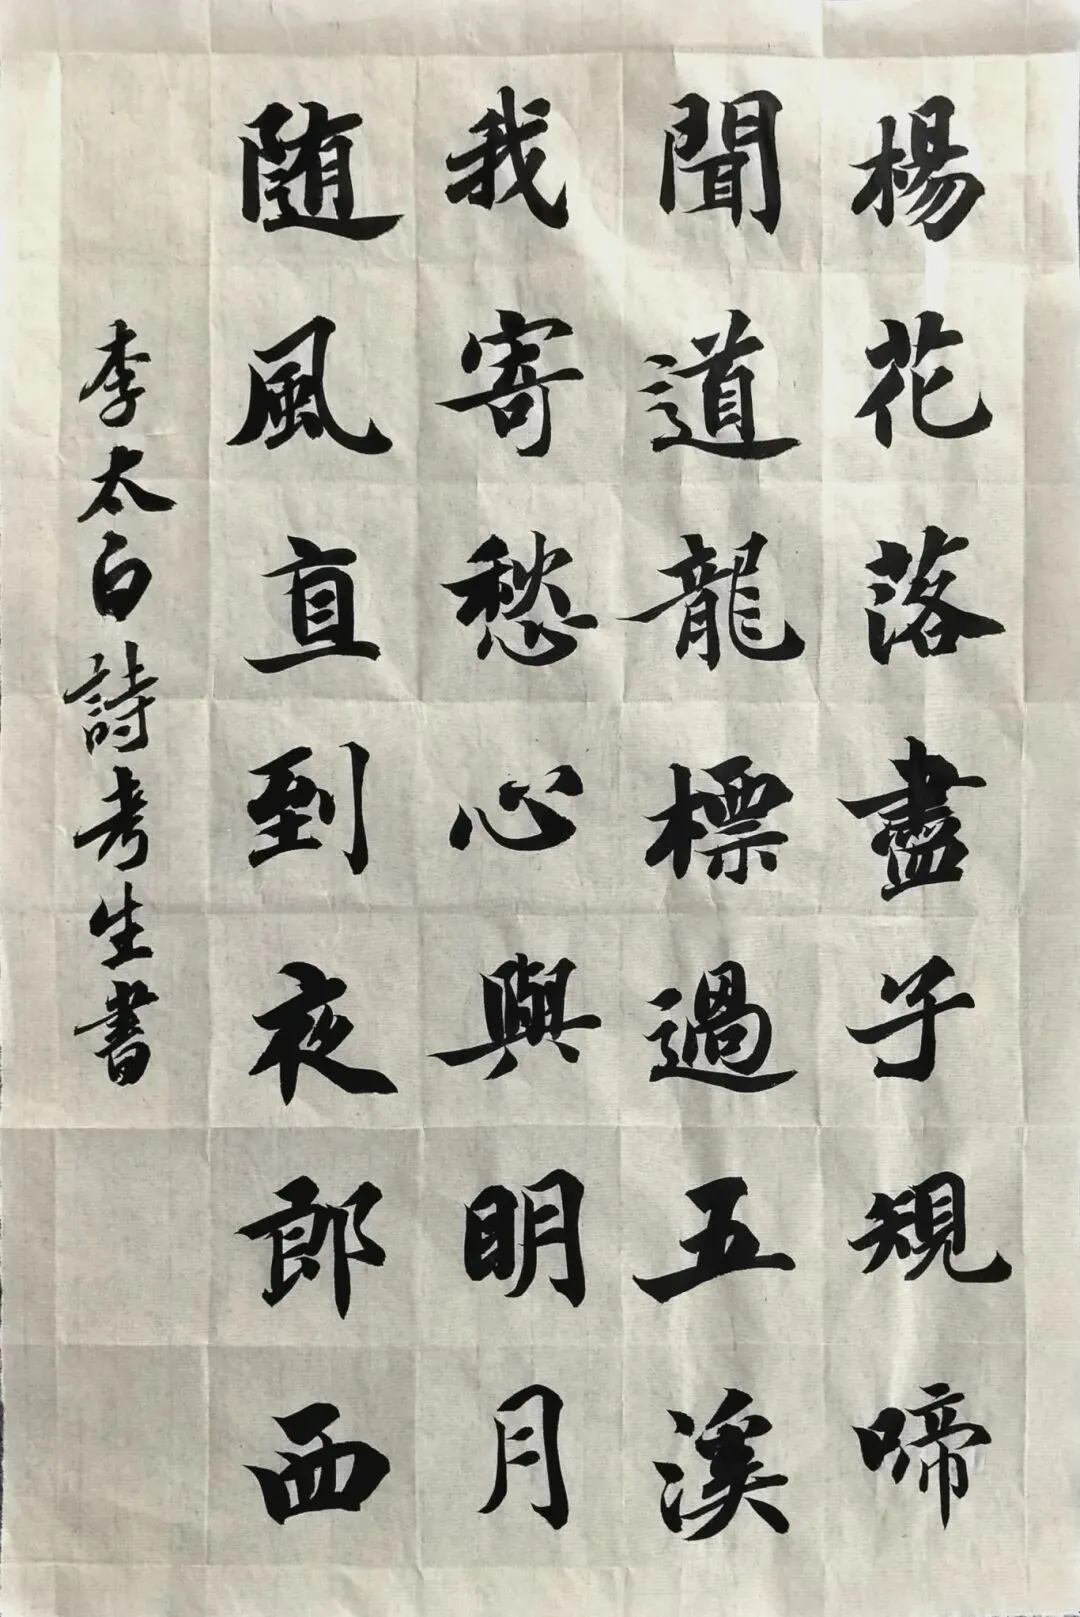 楊花落盡子規啼
聞道龍標過五溪
我寄愁心與明月
随風直到夜郎西
李太白詩考生書